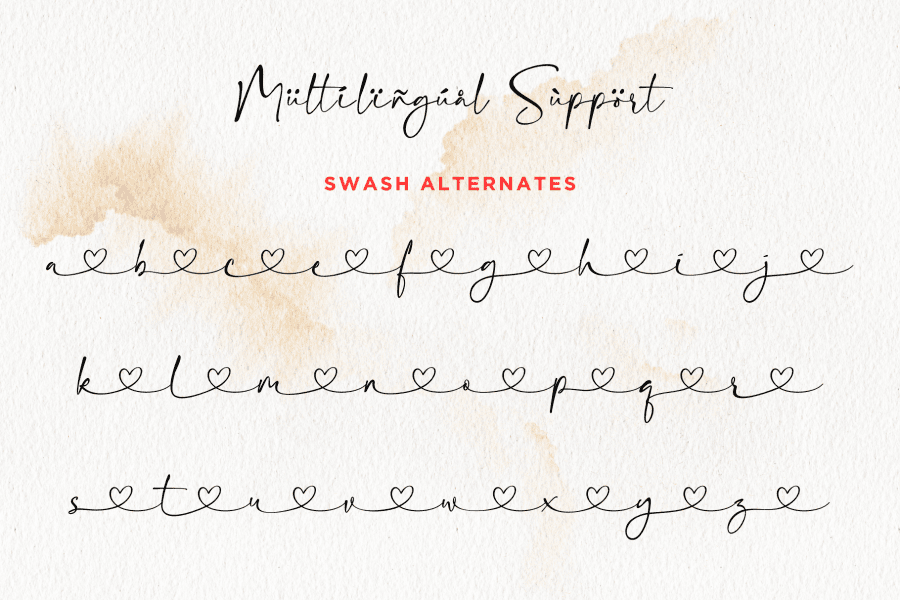 Mültílïñgúål Sùppört
SWASH ALTERNATES
a b c e f g h i j
k l m n o p q r
s t u v w x y z